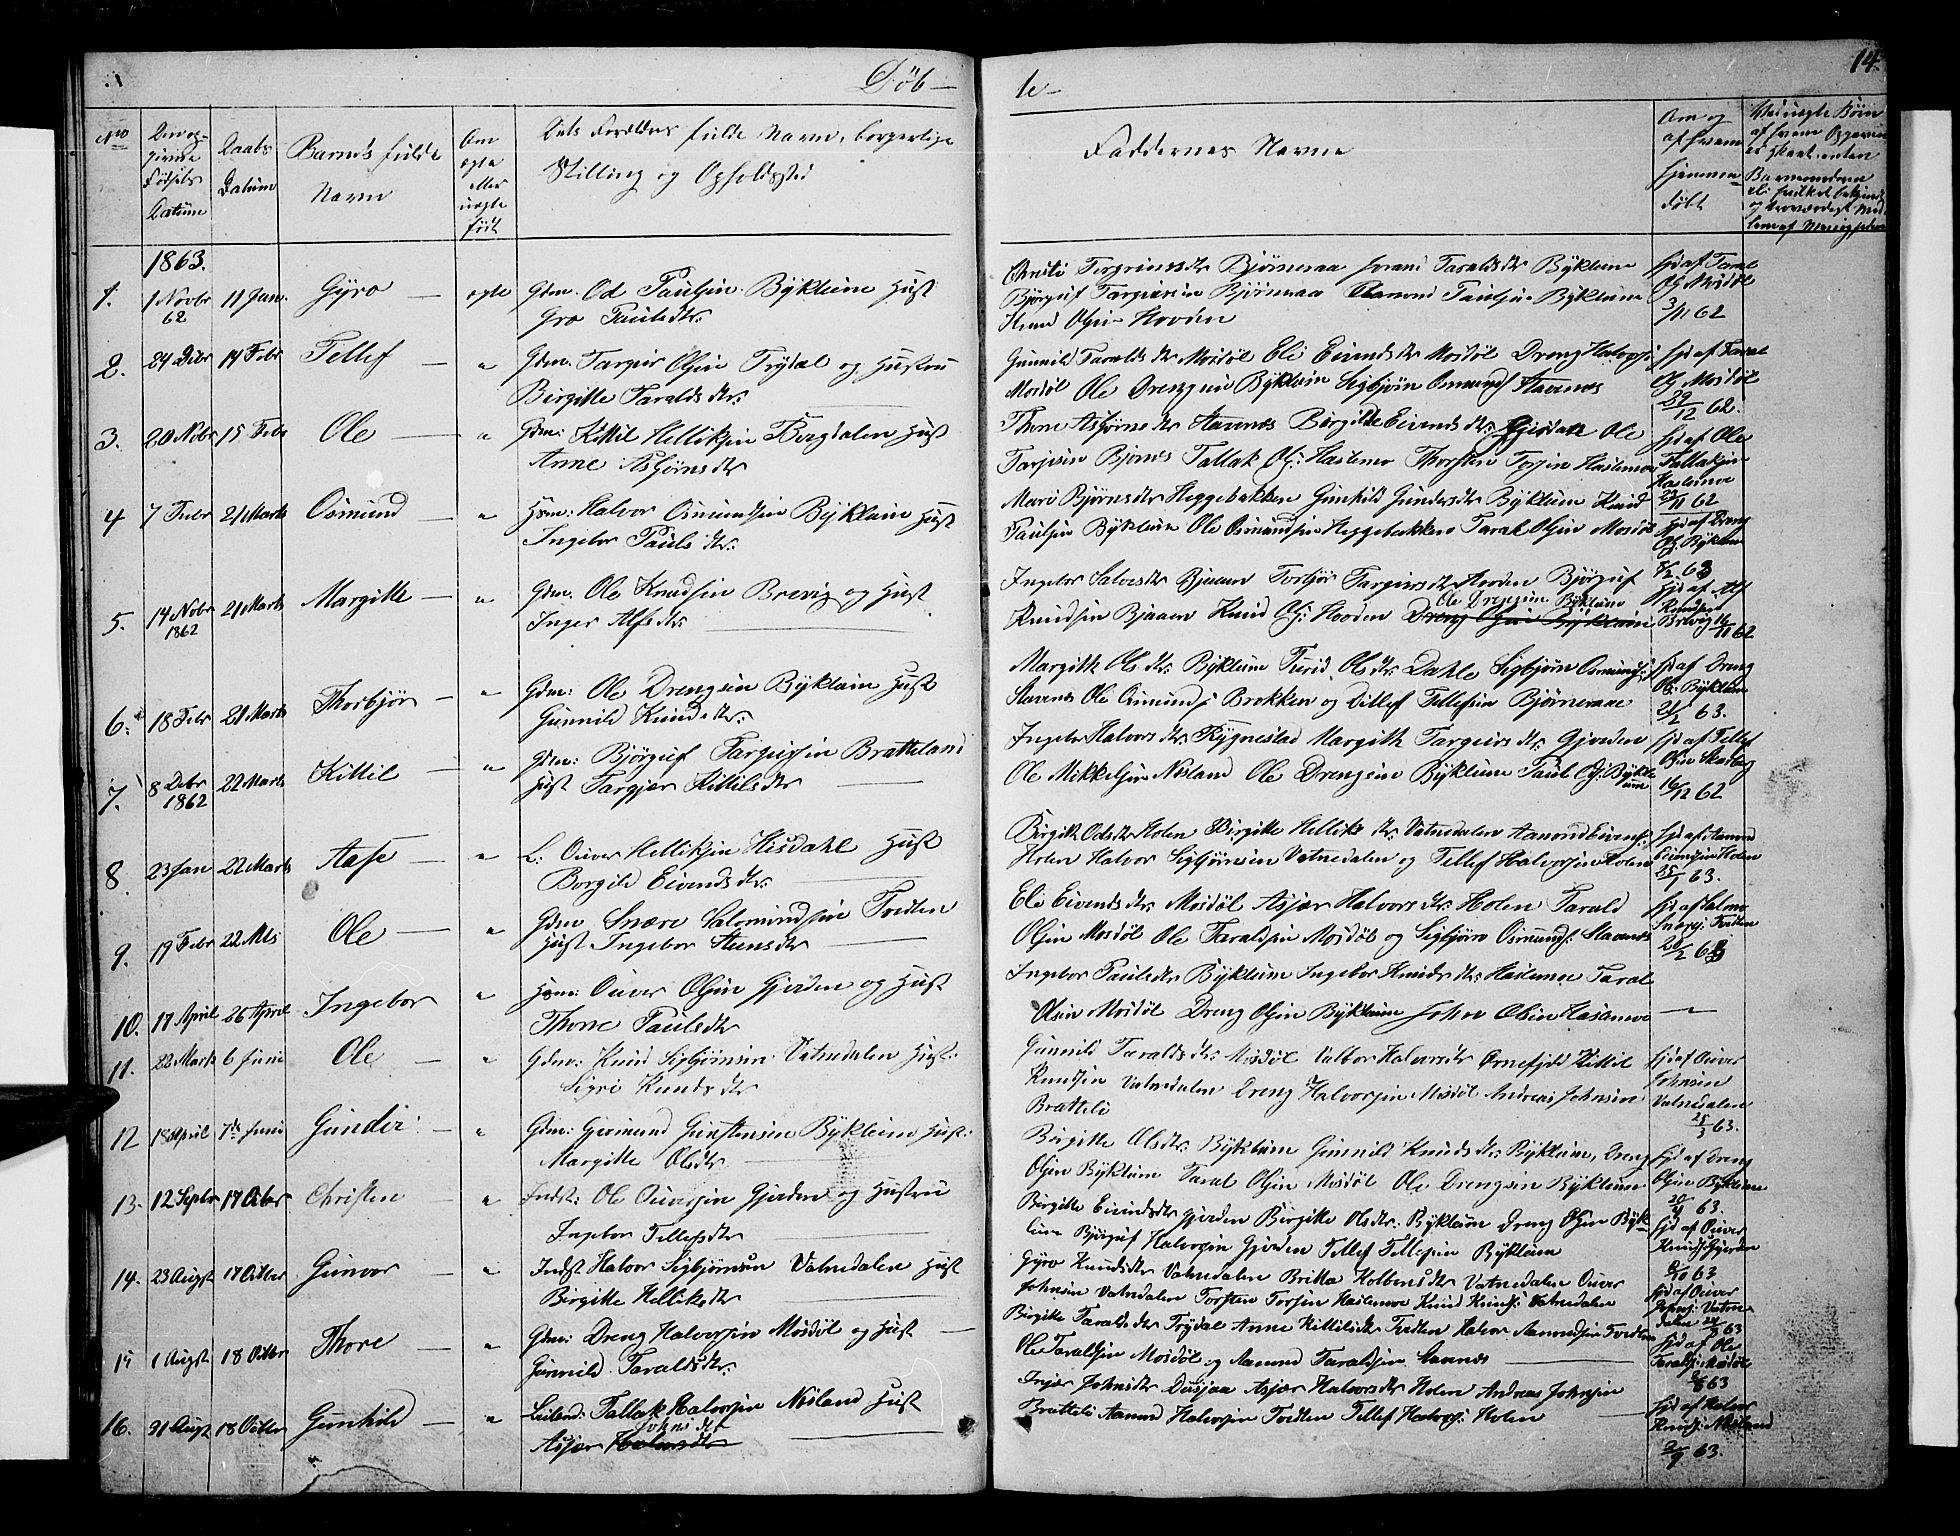 14.
Døb — te —
No
Den op-
givne
Fødsels
Datum
Daabs
Datum
Barnets fulde
Navn
Om
ægte
eller
uægte
født
Dets Forældres fulde Navn, borgerlige
Stilling og Opholdssted
Faddernes Navne
Om og
af hvem
hjemme-
døbt
1863.
1. 1 Novbr 62 11 Jan. Gyro — ægte Gdm. Od Paulsen Bykleim Hust
Gro Paulsdtr.
Bjørnaraa Jorand Taraldsdtr Bykleim
Bjørguf Targiersen Bjørnaraa Aamond Paulsen Bykleim
Knud Olsen Hovden
hjd af Taral
Ols Mosdøl
3/11 62
2. 24 Dcbr 14 Febr Tellef — " Gdm. Targier Olsen Trydal og Hustru
Birgitte Taraldsdtr.
Gunnild Taraldsdtr Mosdøl Eli Eivindsdtr Mosdøl Dreng Halvors:
Mosdøl Ole Drengsen Bykleim Sigbjørn Osmunds Stavenes
hjd af Taral
Ols Mosdøl
29/12 62.
3. 20 Nobr 15 Febr Ole — " Gdm: Kittil Helliksen Bergdalen Hust
Anne Asbjørnsdtr
Thone Asbjørnsdtr Stavenes Birgitte Eivindsdtr. Ole
Tarjeisen Bjones Tallak Ols: Haslemo Thorsten Torjsen Haslemo
hjd af Ole
Tallaksen
Haslemoe
22/11 62
4 7 Febr 21 Marts Osmund — " Hsm: Halvor Osmundsen Bykleim Hust
Ingebor Paulsdtr.
Mari Bjørnsdtr Heggebakken Gunhild Gundersdtr Bykleim Knud
Paulsen Bykleim Ole Osmundsen Heggebakken Taral Olsen Mosdøl
hjd af Dreng
Ols: Bykleim
8/2 63
5. 14 Nobr 1862 21 Marts Margitte — " Gdm. Ole Knudsen Breivig og Hust
Inger Alfsdtr.
Ingebor Salvesdtr Bjaaen Torbjør Targiersdtr Hovden Bjørguf
Knudsen Bjaaen Knud Ols: Hovden Ole Drengsen Bykleim Dreng Olsen Bykleim
hjd af Alf
Knudsen
Breivig 16/11 62
6. 18 Febr 21 Marts Thorbjør — " Gdm: Ole Drengsen Bykleim Hust
Gunnild Knudsdtr.
Margith Olsdtr. Bykleim Turid Olsdtr. Dahle Sigbjørn Osmunds:
Stavenes Ole Osmunds Brokken og Ditlef Tellefsen Bjørnaraae
hjd af Dreng
Ols: Bykleim
21/2 63.
7. 8 Debr 1862 22 Marts Kittil — " Gdm: Bjørguf Targiersen Bratteland
Hust Targjær Kittilsdtr
Ingebor Halvorsdtr. Rygnestad Margith Targeirsdtr. Gjerden
Ole Mikkelsen Nesland Ole Drengsen Bykleim Paul Ols: Bykle
um
hjd af Tellef
16/12 62
8 23 Jan 22 Marts Aase — " L: Ouver Helliksen Hisdahl Hust
Borgild Eivendsdtr.
Birgith Odsdtr Holen Birgitte Helliksdtr. Vatnedalen Aamond Eivends:
Holen Halvor Sigbjørnsen Vatnedalen og Tellef Halvorsen Holen
hjd af Aamond
Eivendsen Holen
25/1 63.
9. 19 Febr 22 Mts Ole — " Gdm Snære Salomundsen Tveiten
Hust Ingebor Steinsdtr
Eli Eivendsdtr. Mosdøl Asjær Halvorsdtr. Holen Tarald
Olsen Mosdøl Ole Taraldsen Mosdøl og Sigbjørn Osmunds: Stavenes
20/2 63
10. 17 April 26 April Ingebor " Hsm: Ouver Olsen Gjerden og Hust
Thone Paulsdtr
Ingebor Paulsdtr Bykleim Ingebor Knudsdtr. Haslemoe Taral
Olsen Mosdøl Dreng Olsen Bykleim Johne Olsen Haslemoe
11. 22 Marts 6 Juni Ole — " Gdm: Knud Sigbjørnsen Vatnedalen Hust:
Sigri Knudsdtr
Gunnild Taraldsdtr. Mosdøl Valbor Halvorsdtr Ørnefjeld Kittil
Knudsen Vatnedalen Dreng Halvorsen Mosdøl Andreas Johnsen
Bratteli
hjd af Ouver
Johnsen
Vatnedalen
25/3 63.
12 18 April 7de Juni Gunder — " Gdm: Gjermund Gunstensen Bykleim Hust:
Margitte Olsdtr
Birgitte Olsdtr: Bykleim Gunnild Knudsdtr Bykleim, Dreng
Olsen Bykleim Taral Olsen Mosdøl Ole Drengsen Bykleim
hjd af Dreng
Olsen Bykleim
20/4 63.
13. 12 Septbr 17 Octbr Christen — " Indst: Ole Ouversen Gjerden og Hustru
Ingebor Tellefsdtr
Birgitte Eivindsdtr Gjerden Birgitte Olsdtr: Bykleim Dreng Olsen Byk-
leim Bjørguf Halvorsen Gjerden Tellef Tellefsen Bykleim
hjd af Ouver
Knuds: Gjerden
63
14. 23 Augst 17 Octber Gunvor — " Indst Halvor Sigbjørnsen Vatnedalen Hust
Birgitte Helliksdtr
Gyro Knudsdtr Vatnedalen Britta Kolbensdtr Vatnedalen Ouver
Johnsen Vatnedalen Torsten Torjsen Haslemoe Knud Knuds: Vatnedalen
hjd af Ouver
Johns: Vatne-
dalen 24/8 63
15 1 Augst 18 Octbr Thore — " Gdm: Dreng Halvorsen Mosdøl og Hust —
Gunnild Taraldsdtr.
Birgitte Taraldsdtr Trydal Anne Kittilsdtr Tveiten Halvor Aamundsen Tveiten
Ole Taraldsen Mosdøl og Aamund Taraldsen Stavenes
hjd af Ole
Taralds: Mosdøl
63
16. 31 Augst 18 Octbr Gunhild — " Leilend: Tallak Halvorsen Nesland Hust
Asjær Halvorsdtr Johnsdtr
Injær Johnsdtr Asjær Halvorsdtr Holen Andreas Johnsen
Bratteli Aamund Halvorsen Tveiten Tellef Halvors: Holen
hjd af Halvor
Knuds: Nesland
2/9 63.